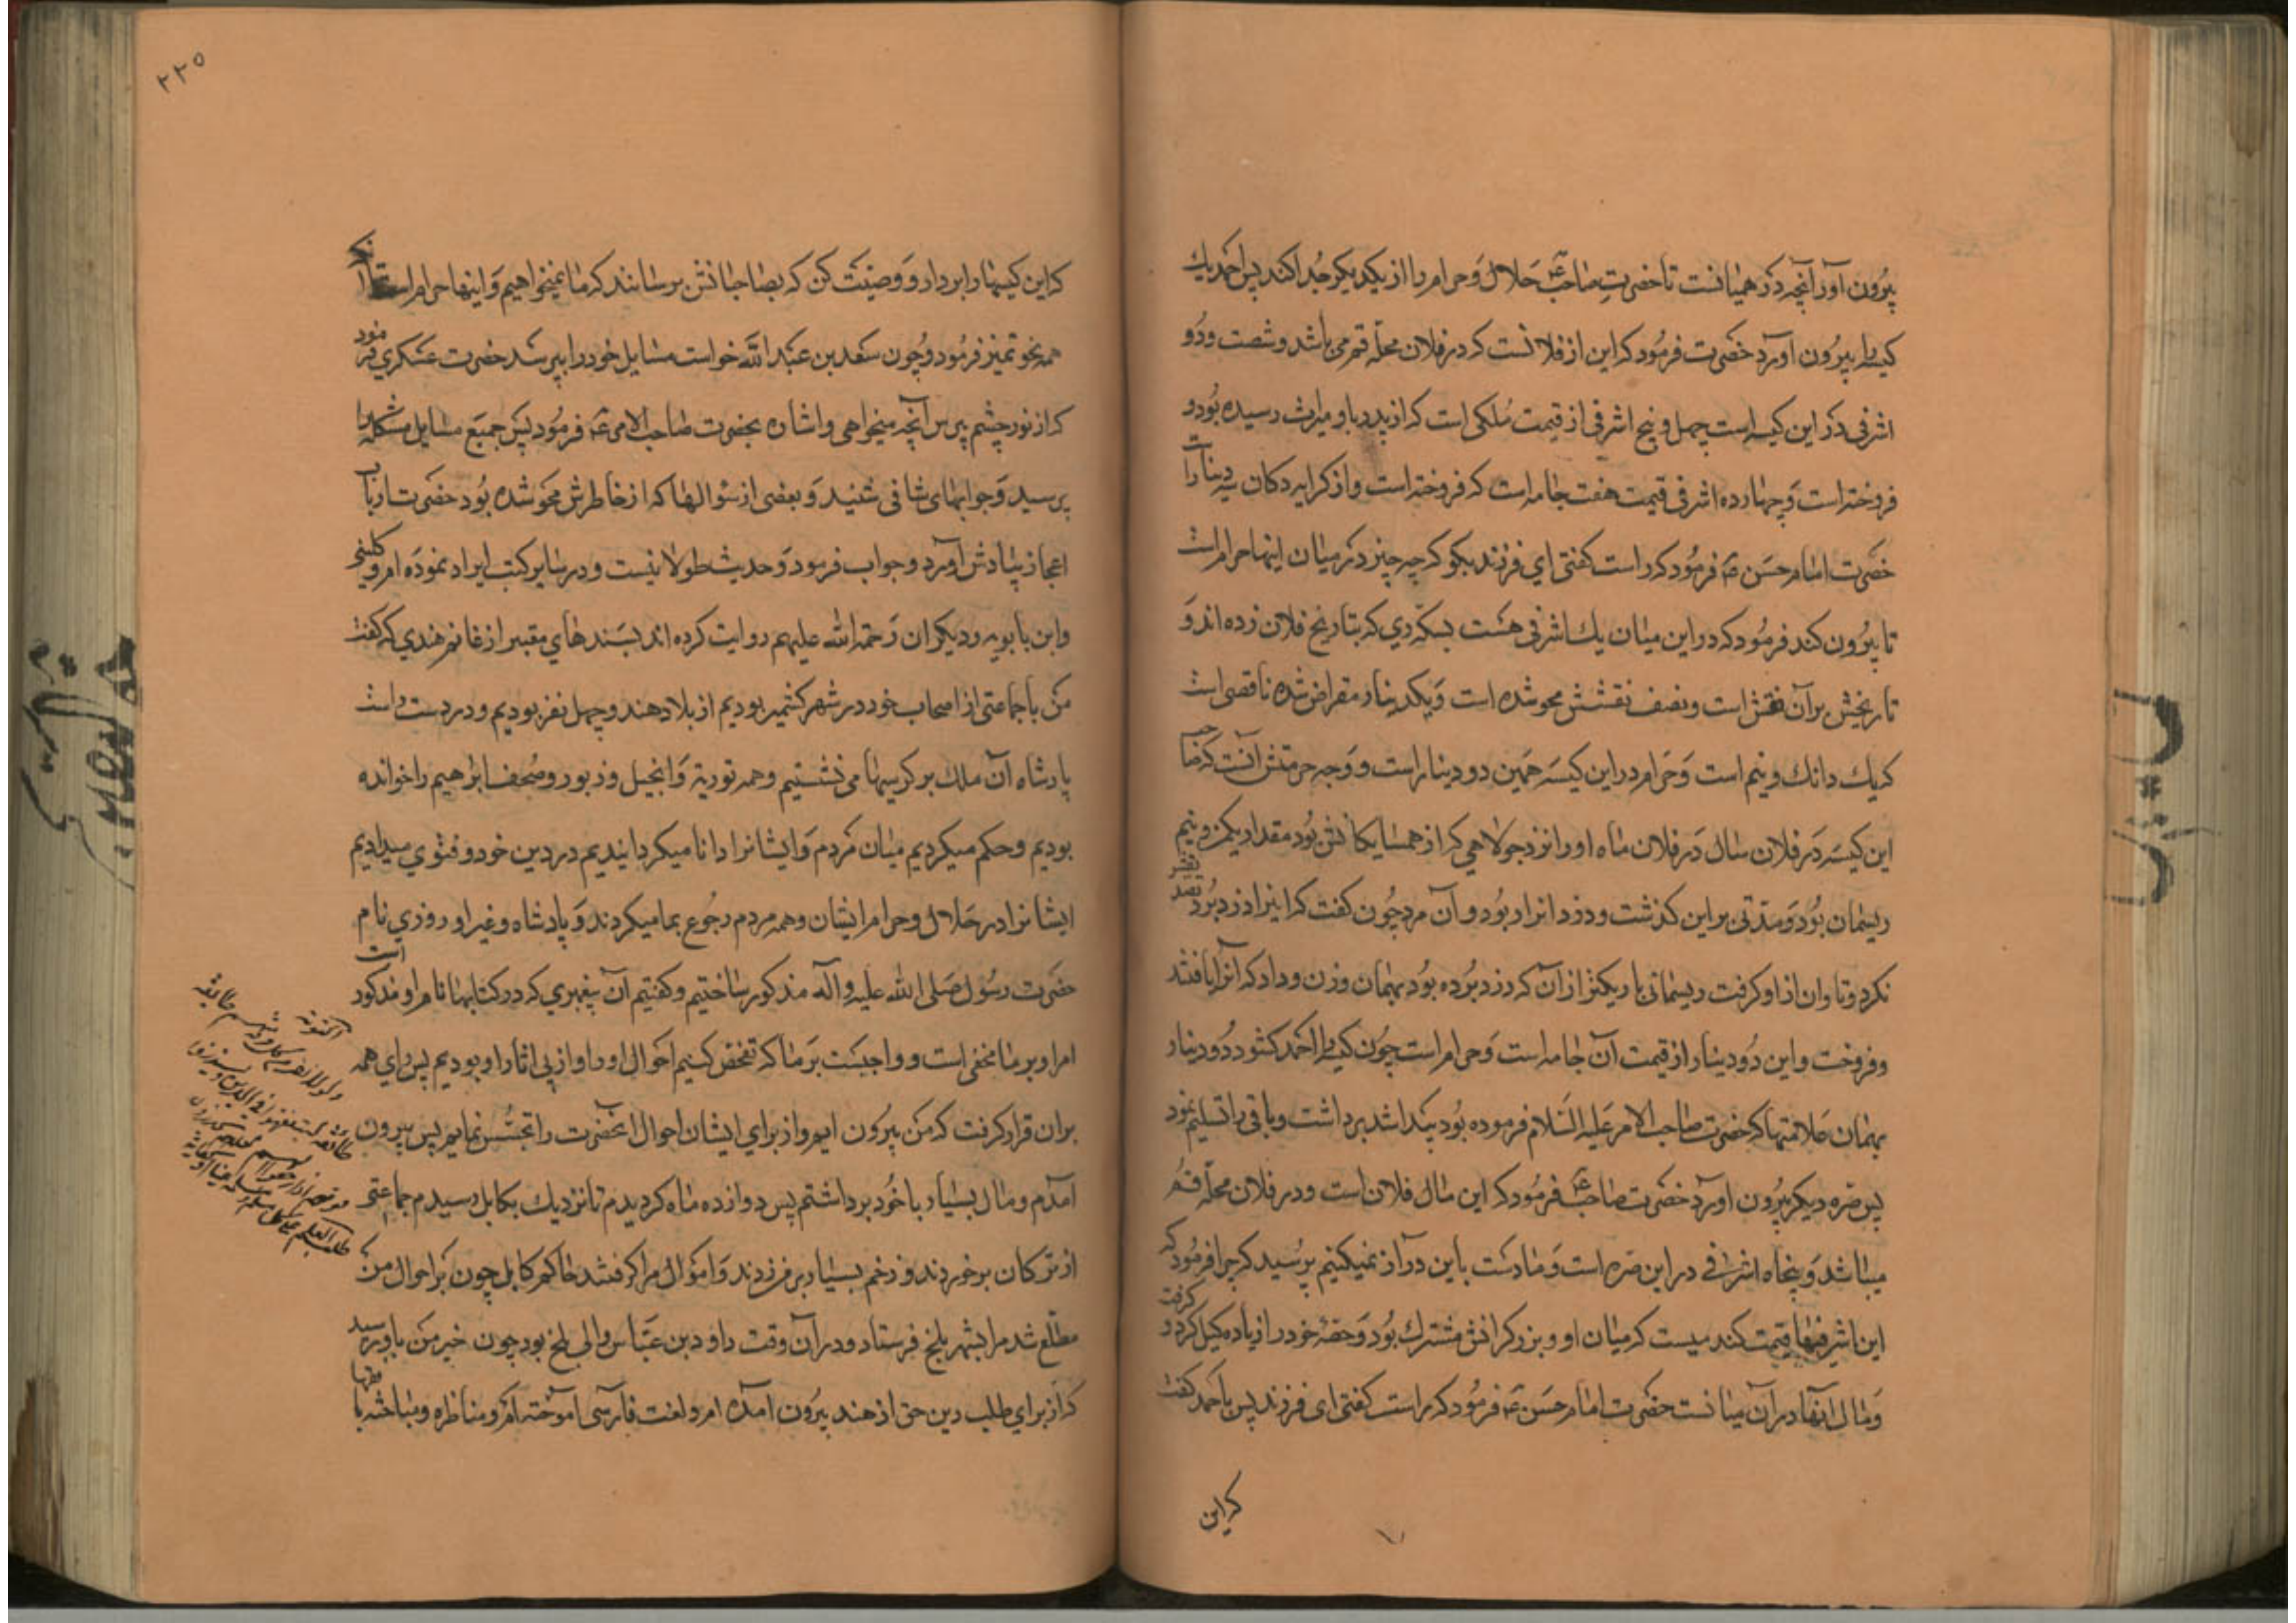 بیرون آور آنچه در همیانست تا حضرت صاحب ع حلال و حرام را از یکدیکر جدا کند پس احمد یك
کیسه را بیرون آورد حضرت فرمود که این از فلانست که در فلان محله قم می باشد و شصت و دو
اشرفی در این کیسه است چهل و پنج اشرفی از قیمت ملکی است که از پدر باو میراث رسیده بود و
فروخته است و چهارده اشرفی قیمت هفت جامه است که فروخته است و از کرایه دکان سه دینار است
حضرت امام حسن ع فرمود که راست کفتی ای فرزند بکو که چه چیز در میان اینها حرام است
تا بیرون کند فرمود که در این میان یك اشرفی هست بسکه ری که بتاریخ فلان زده اند و
تاریخش بر آن نقش است و نصف نقشش محو شده است و یکدینار مقراض شده ناقصی است
که یك دانك و نیم است و حرام در این کیسه همین دو دینار است و وجه حرمتش آنست که صاحب
این کیسه در فلان سال در فلان ماه او را نزد جولاهی که از همسایکانش بود مقدار یکمن و نیم
ریسمان بود و مدتی بر این کذشت و دزد انرا ربود و آن مرد چون کفت که انرا دزد برد تصدیقش
نکرد و تاوان از او کرفت ریسمانی باریکتر از آن که دزد برده بود بهمان وزن و داد که آنرا بافتند
و فروخت و این دو دینار از قیمت آن جامه است و حرام است چون کیسه را احمد کشود دو دینار
بهمان علامتها که حضرت صاحب الامر علیه السلام فرموده بود پیدا شد برداشت و باقی را تسلیم نمود
پس صره دیکر بیرون آورد حضرت صاحب ع فرمود که این مال فلان است و در فلان محله قم
میباشد و پنجاه اشرفی در این صره است و ما دست باین دراز نمیکنیم پرسید که چرا فرمود که
این اشرفیها قیمت کندمیست که میان او و بزرکرانش مشترك بود و حصه خود را زیاده کیل کرد و کرفت
و مال آنها در آن میانست حضرت امام حسن ع فرمود که راست کفتی ای فرزند پس باحمد کفت
که این
۲۲۵
که این کیسها را بردار و وصیت کن که بصاحبانش برسانند که ما نمیخواهیم و اینها حرام است تا آنکه
همه بنحو تمیز فرمود و چون سعد بن عبد الله خواست مسایل خود را بپرسد حضرت عسکری فرمود
که از نور چشم بپرس آنچه میخواهی و اشاره بحضرت صاحب الامر ع فرمود پس جمیع مسایل مشکله را
پرسید و جوابهای شافی شنید و بعضی از سؤالها که از خاطرش محو شده بود حضرت از باب
اعجاز بیادش آورد و جواب فرمود و حدیث طولانیست و در سایر کتب ایراد نموده ام و کلینی
و ابن بابویه و دیکران رحمة الله علیهم روایت کرده اند بسندهای معتبر از غانم هندی که کفت
من با جماعتی از اصحاب خود در شهر کشمیر بودیم از بلاد هند و چهل نفر بودیم و در دست راست
پادشاه آن ملك بر کرسیها می نشستیم و همه توریة و انجیل و زبور و صحف ابراهیم را خوانده
بودیم و حکم میکردیم میان مردم و ایشانرا دانا میکردانیدیم در دین خود و فتوی میدادیم
ایشانرا در حلال و حرام ایشان و همه مردم رجوع بما میکردند و پادشاه و غیر او روزی نام
حضرت رسول صلی الله علیه و آله مذکور ساختیم و کفتیم آن پیغمبری که در کتابها نام او مذکور است
امر او بر ما مخفی است و واجبست بر ما که تفحص کنیم احوال او را و از پی اثار او بودیم پس رای همه
بر ان قرار کرفت که من بیرون ایم و از برای ایشان احوال انحضرت را تجسس نمایم پس بیرون
آمدم و مال بسیار با خود برداشتم پس دوازده ماه کردیدم تا نزدیك بکابل رسیدم جماعتی
از ترکان برخوردند و زخم بسیار بر من زدند و اموال مرا کرفتند حاکم کابل چون بر احوال من
مطلع شد مرا بشهر بلخ فرستاد و در آن وقت داود بن عباس والی بلخ بود چون خبر من باو رسید
که از برای طلب دین حق از هند بیرون آمده ام و لغت فارسی آموخته ام و مناظره و مباحثه با فقها